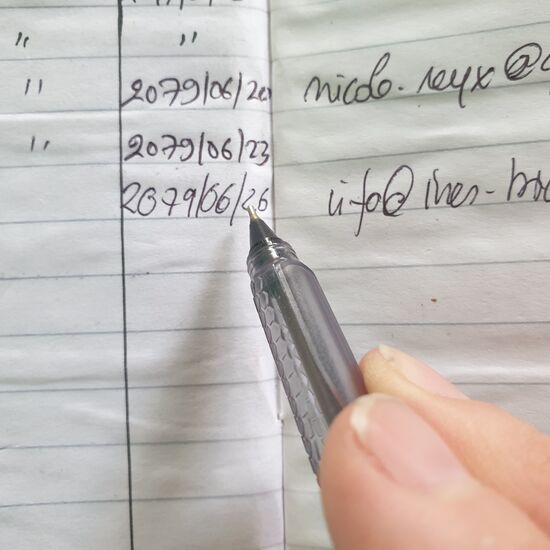 " "
" 2079/06/20 nicolo.reyx@
" 2079/06/23
2079/06/26 info@ines-